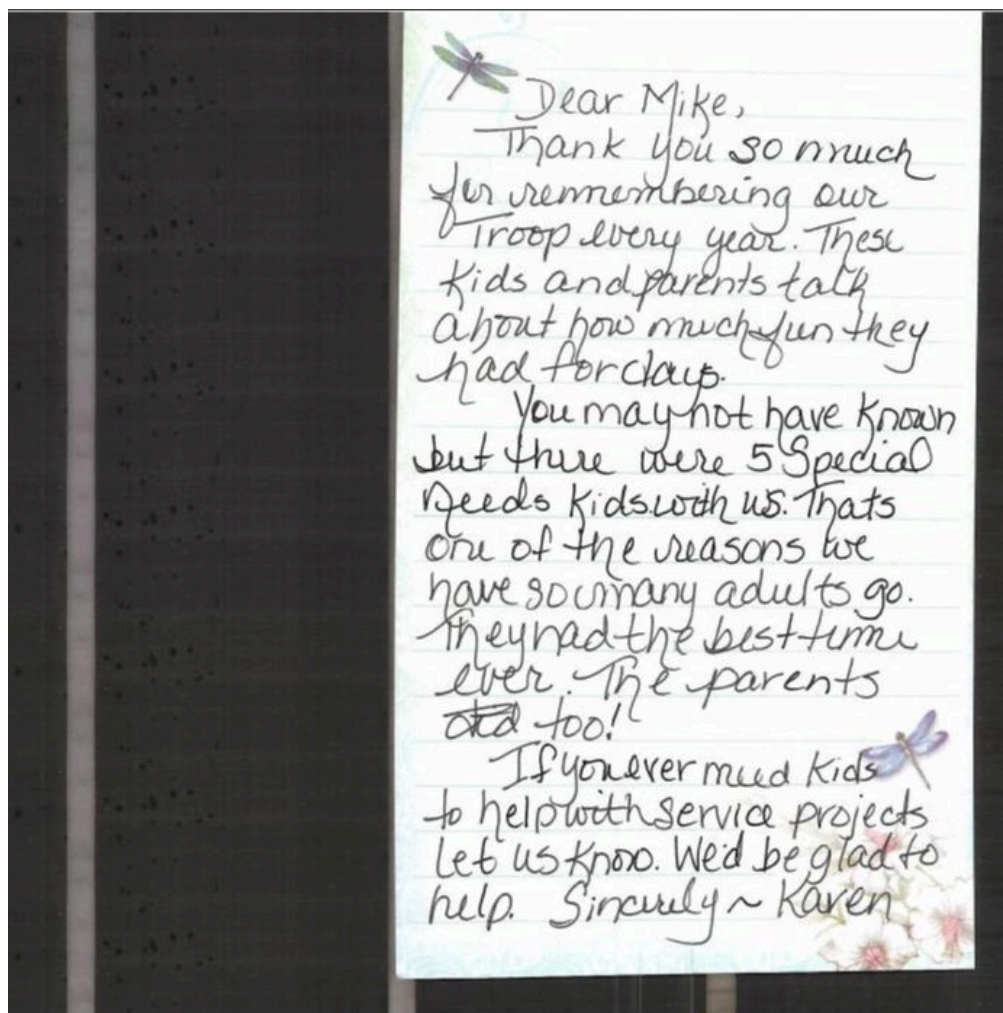 Dear Mike,
Thank you so much
for remembering our
Troop every year. These
kids and parents talk
about how much fun they
had for days.
You may not have known
but there were 5 Special
Needs kids with us. Thats
one of the reasons we
have so many adults go.
They had the best time
ever. The parents
too!
If you ever need kids
to help with service projects
let us know. We'd be glad to
help. Sincerely ~ Karen